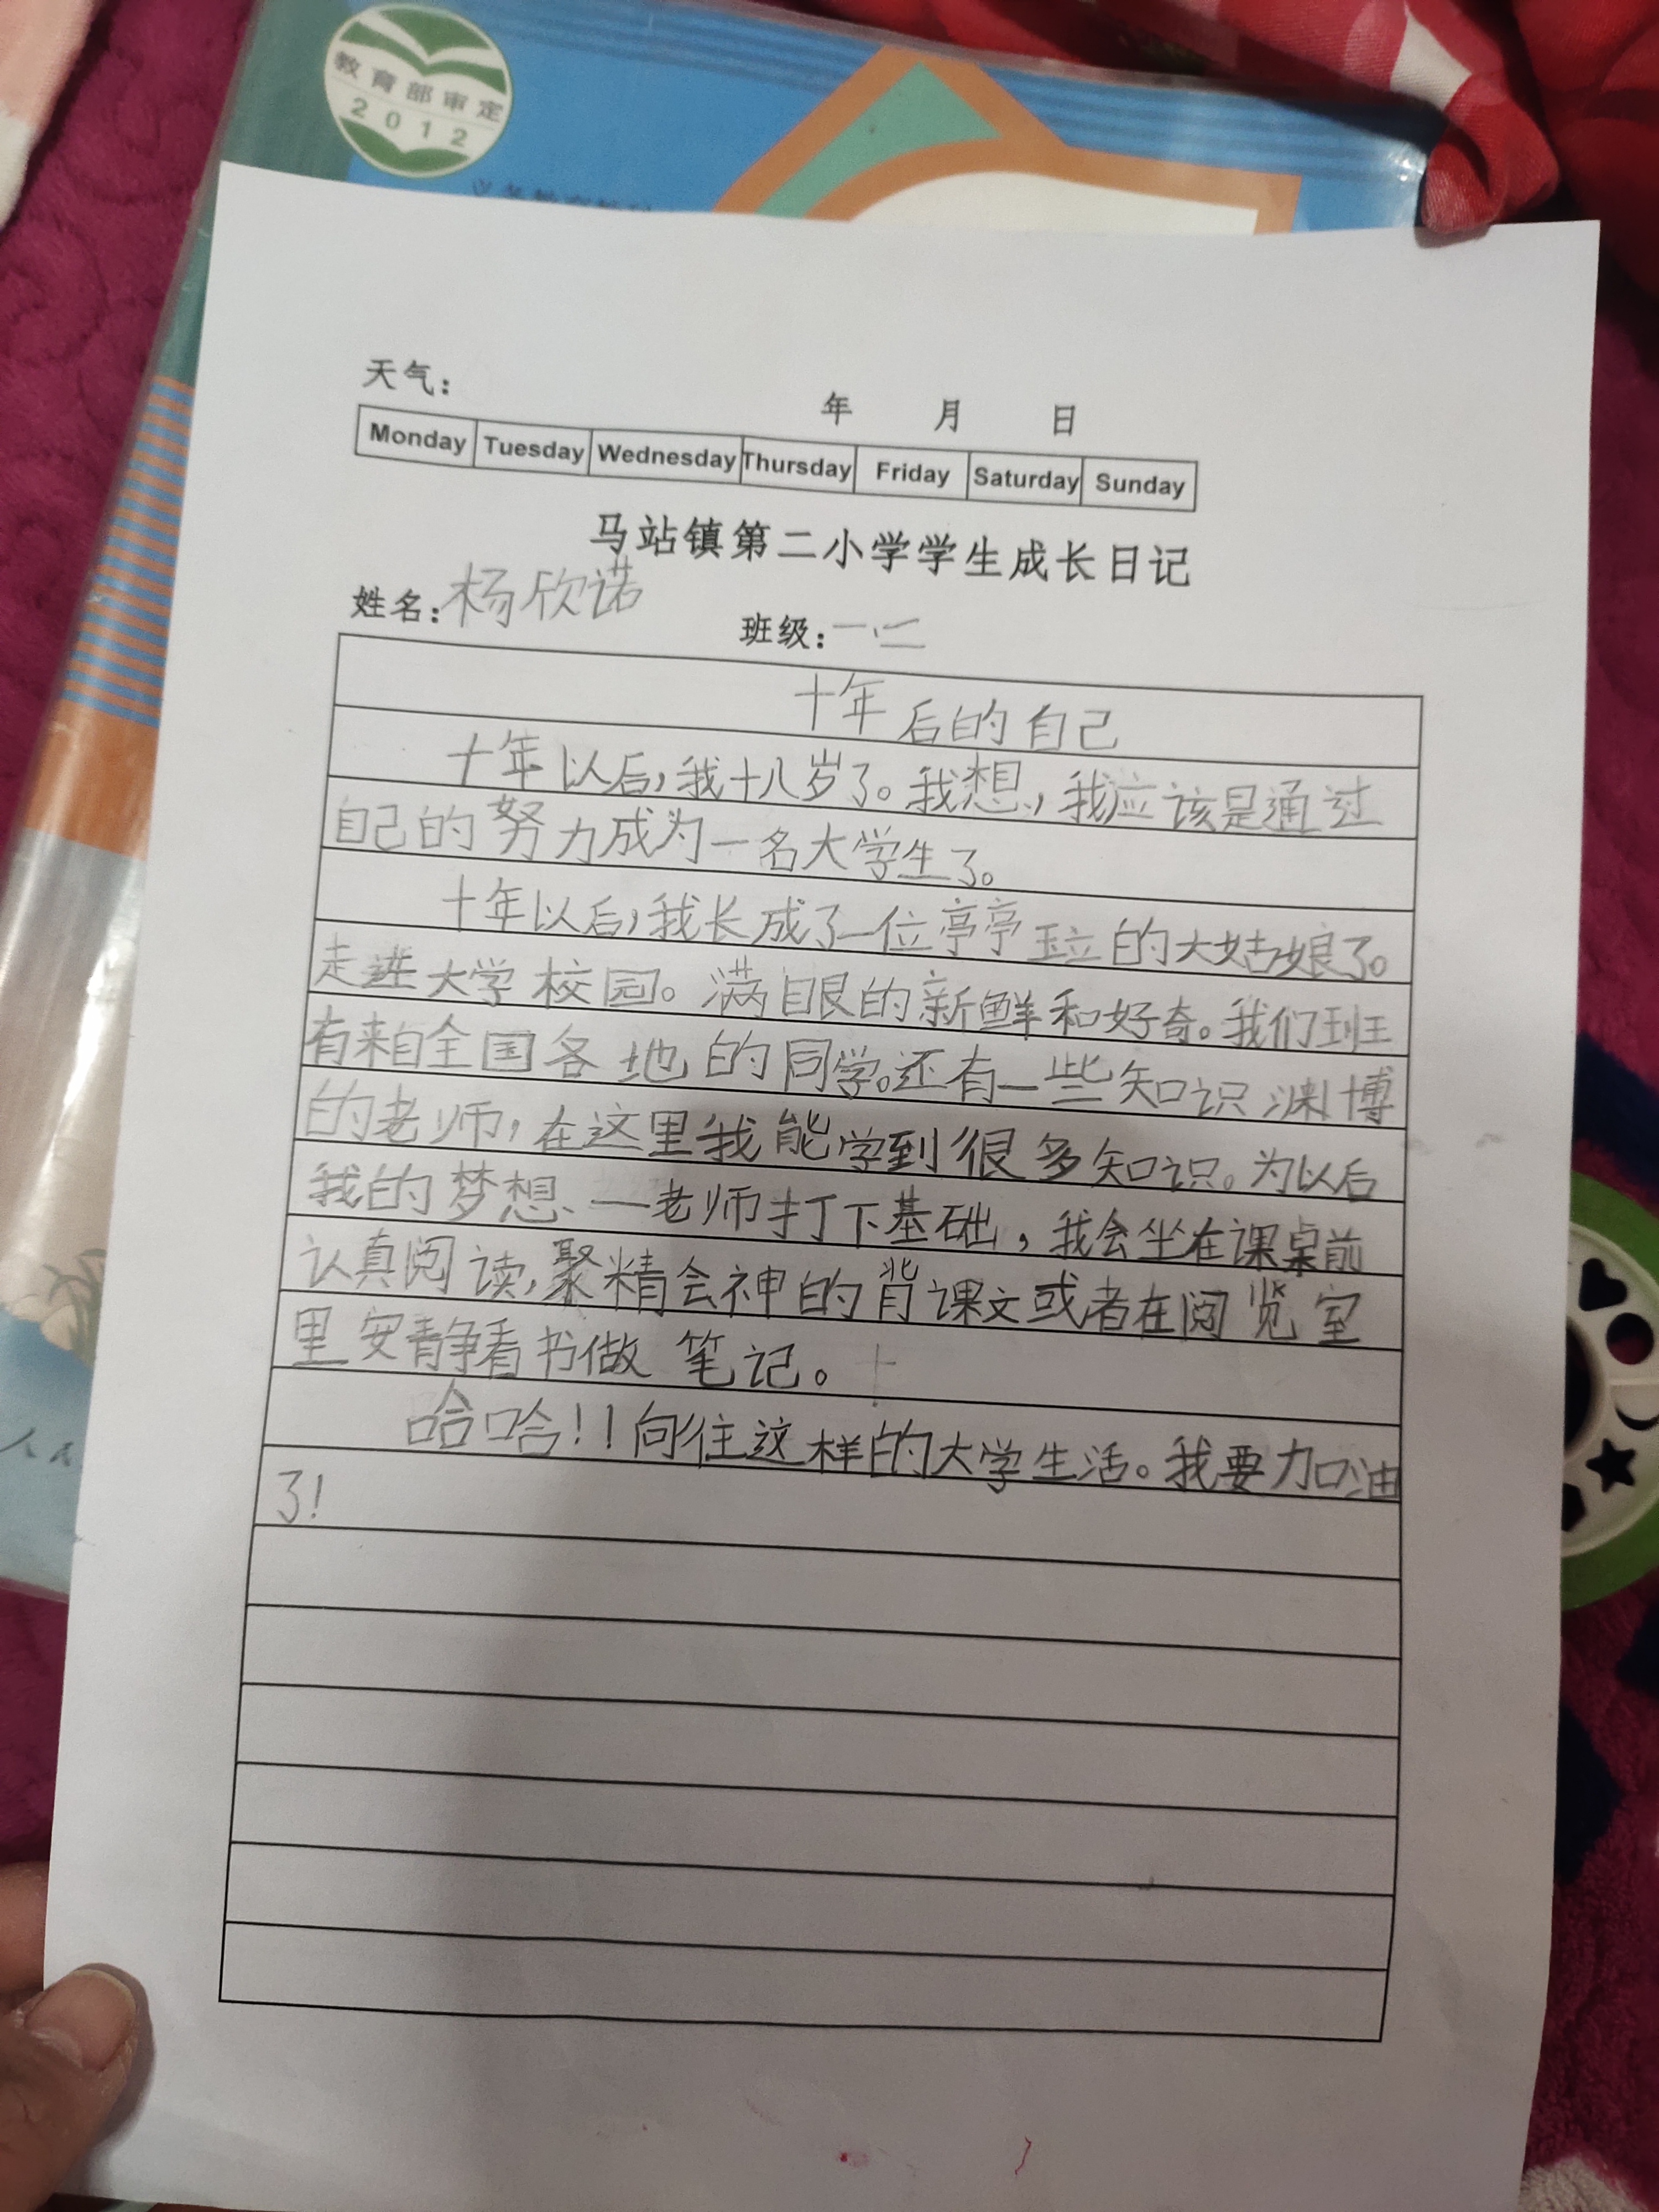 教育部审定
2012
天气：
年 月 日
Monday Tuesday Wednesday Thursday Friday Saturday Sunday
马站镇第二小学学生成长日记
姓名：杨欣诺 班级：一.二
十年后的自己
十年以后，我十八岁了。我想，我应该是通过
自己的努力成为一名大学生了。
十年以后，我长成了一位亭亭玉立的大姑娘了。
走进大学校园。满眼的新鲜和好奇。我们班
有来自全国各地的同学。还有一些知识渊博
的老师，在这里我能学到很多知识。为以后
我的梦想、一老师打下基础，我会坐在课桌前
认真阅读，聚精会神的背课文或者在阅览室
里安静看书做笔记。
哈哈！！向往这样的大学生活。我要加油
了！
人民